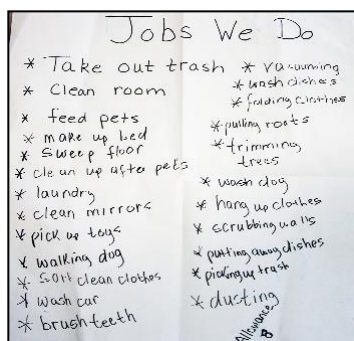 Jobs We Do
* Take out trash
* Clean room
* feed pets
* make up bed
* Sweep floor
* clean up after pets
* laundry
* clean mirrors
* pick up toys
* walking dog
* Sort clean clothes
* wash car
* brush teeth
* vacuuming
* wash dishes
* folding clothes
* pulling roots
* trimming
trees
* wash dog
* hang up clothes
* scrubbing walls
* putting away dishes
* picking up trash
* dusting
Allowance